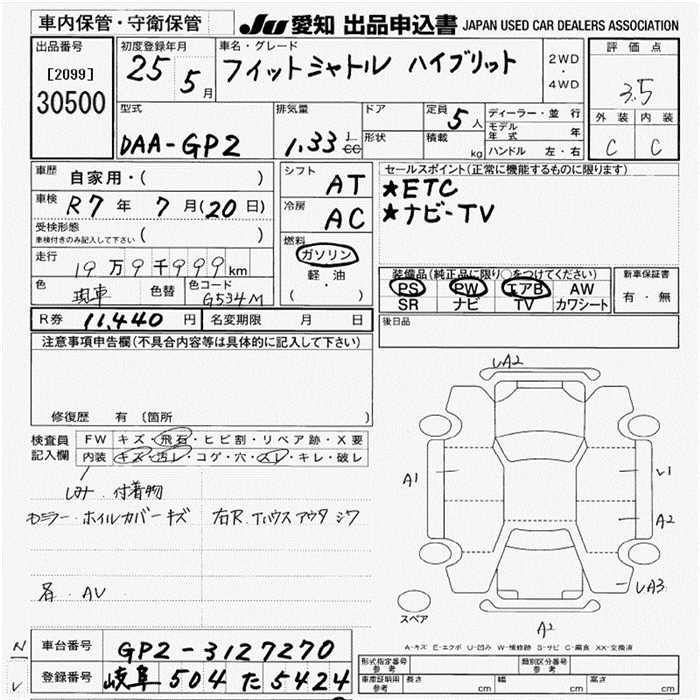 車内保管・守衛保管
JU 愛知 出品申込書 JAPAN USED CAR DEALERS ASSOCIATION
出品番号
[2099]
30500
初度登録年月
25 5月
車名・グレード
フィットシャトル ハイブリット
2WD
・
4WD
評価点
3.5
外装 内装
C C
型式
DAA-GP2
排気量
1.33 L CC
ドア
形状
定員 5人
積載 kg
ディーラー・並行
モデル年式 年
ハンドル 左・右
車歴 自家用・( )
車検 R7年 7月(20日)
受検形態
車検付きのみ記入して下さい ( )
走行 19万9千999km
色 現車 色替 色コード G534M
シフト AT
冷房 AC
燃料
ガソリン
軽油
( )
セールスポイント(正常に機能するものに限ります)
★ETC
★ナビ-TV
装備品(純正品に限り○をつけてください)
PS PW エアB AW
SR ナビ TV カワシート
新車保証書
有・無
R券 11,440円 名変期限 月 日
後日品
注意事項申告欄(不具合内容等は具体的に記入して下さい)
修復歴 有 〔箇所 〕
検査員
記入欄
FW キズ・飛石・ヒビ割・リペア跡・X要
内装 キズ・汚レ・コゲ・穴・スレ・キレ・破レ
シミ、付着物
ミラー・ホイルカバーキズ 右R.Tハウスアウタシワ
名. AV
UA2
A1
U1
A2
UA3
A2
スペア
A-キズ E-エクボ U-凹み W-補修跡 S-サビ C-腐食 XX-交換済
N
V
車台番号 GP2-3127270
登録番号 岐阜 504 た 5424
形式指定番号 参考
類別区分番号 参考
車庫証明用 参考 長さ cm 幅 cm 高さ cm